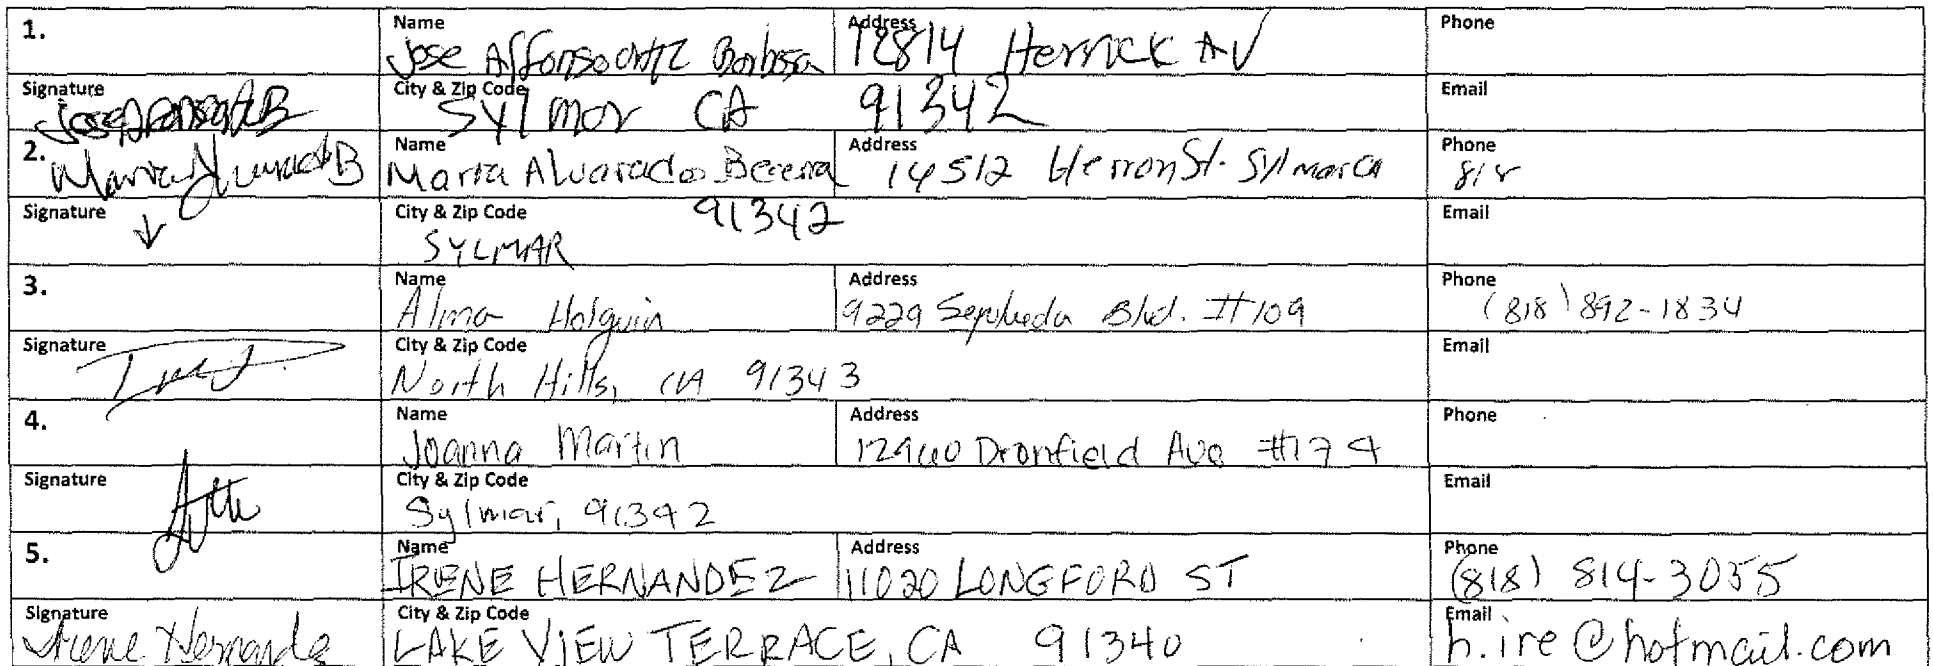 1. Name Jose Affonso Ortiz Barbosa Address 12814 Herrick AV Phone
Signature City & Zip Code Sylmar CA 91342 Email
2. Maria Alvarado B Name Maria Alvarado Becerra Address 14512 Herron St. Sylmar ca Phone 818
Signature ↓ City & Zip Code SYLMAR 91342 Email
3. Name Alma Holguin Address 9229 Sepulveda Blvd. #109 Phone (818) 892-1834
Signature City & Zip Code North Hills, CA 91343 Email
4. Name Joanna Martin Address 12960 Dronfield Ave #174 Phone
Signature City & Zip Code Sylmar, 91342 Email
5. Name IRENE HERNANDEZ Address 11020 LONGFORD ST Phone (818) 814-3055
Signature Irene Hernandez City & Zip Code LAKE VIEW TERRACE, CA 91340 Email h.ire@hotmail.com